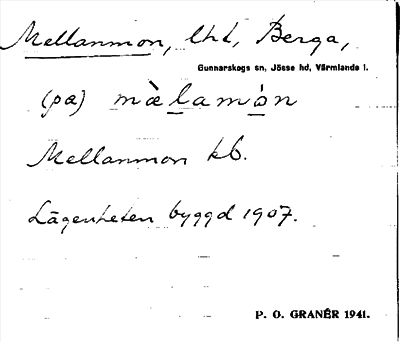 Mellanmon, lht, Berga,
Gunnarskogs sn, Jösse hd, Värmlands l.
(på) mὲlamòn
Mellanmon kb.
Lägenheten byggd 1907.
P. O. GRANÉR 1941.